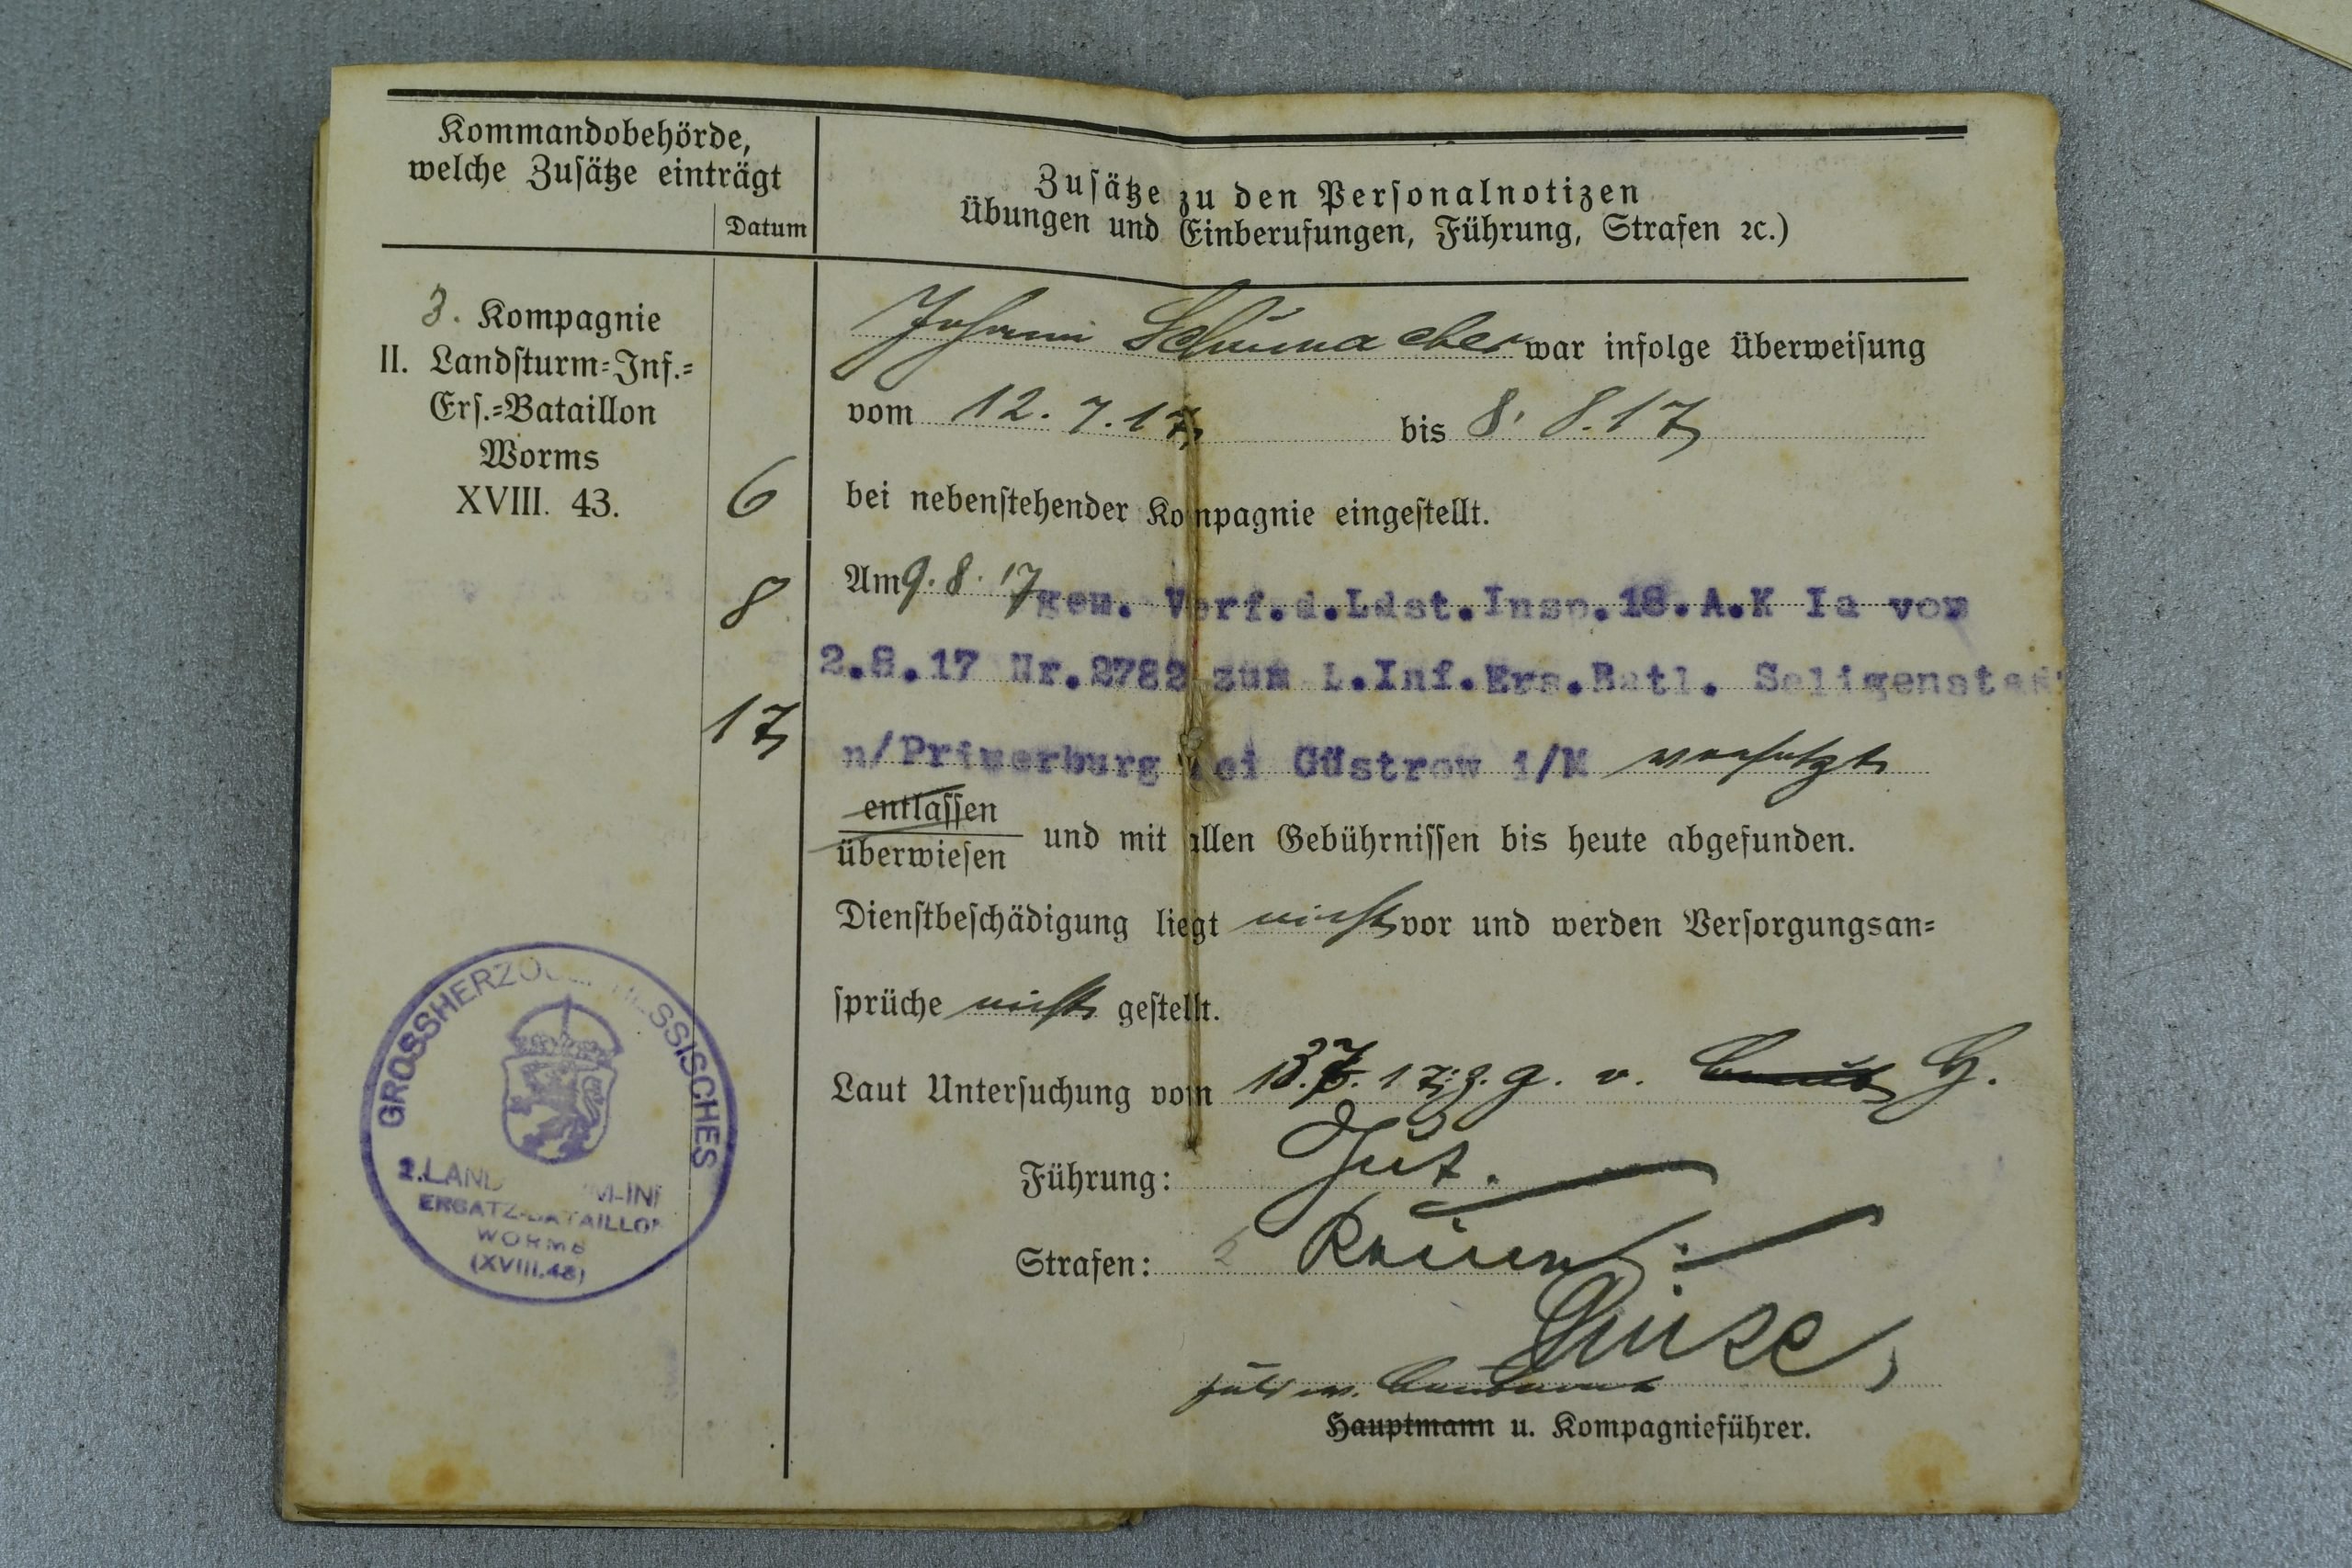 Kommandobehörde,
welche Zusätze einträgt
Datum
Zusätze zu den Personalnotizen
Übungen und Einberufungen, Führung, Strafen ꝛc.)
3. Kompagnie
II. Landsturm-Inf.-
Ers.-Bataillon
Worms
XVIII. 43.
6
8
17
Johann Schumacher war infolge Überweisung
vom 12.7.17 bis 8.8.17
bei nebenstehender Kompagnie eingestellt.
Am 9.8.17 gem. Verf.d.Ldst.Insp.18.A.K Ia vom
2.8.17 Nr.2782 zum L.Inf.Ers.Batl. Seligenstad
n/Primerburg bei Güstrow i/M versetzt
entlassen
überwiesen und mit allen Gebührnissen bis heute abgefunden.
Dienstbeschädigung liegt nicht vor und werden Versorgungsan-
sprüche nicht gestellt.
Laut Untersuchung vom 17. g. v. H.
Führung: Gut.
Strafen: Keine
Hauptmann u. Kompagnieführer.
GROSSHERZOGL. HESSISCHES
2.LANDSTURM-INF
ERSATZ-BATAILLON
WORMS
(XVIII.43)